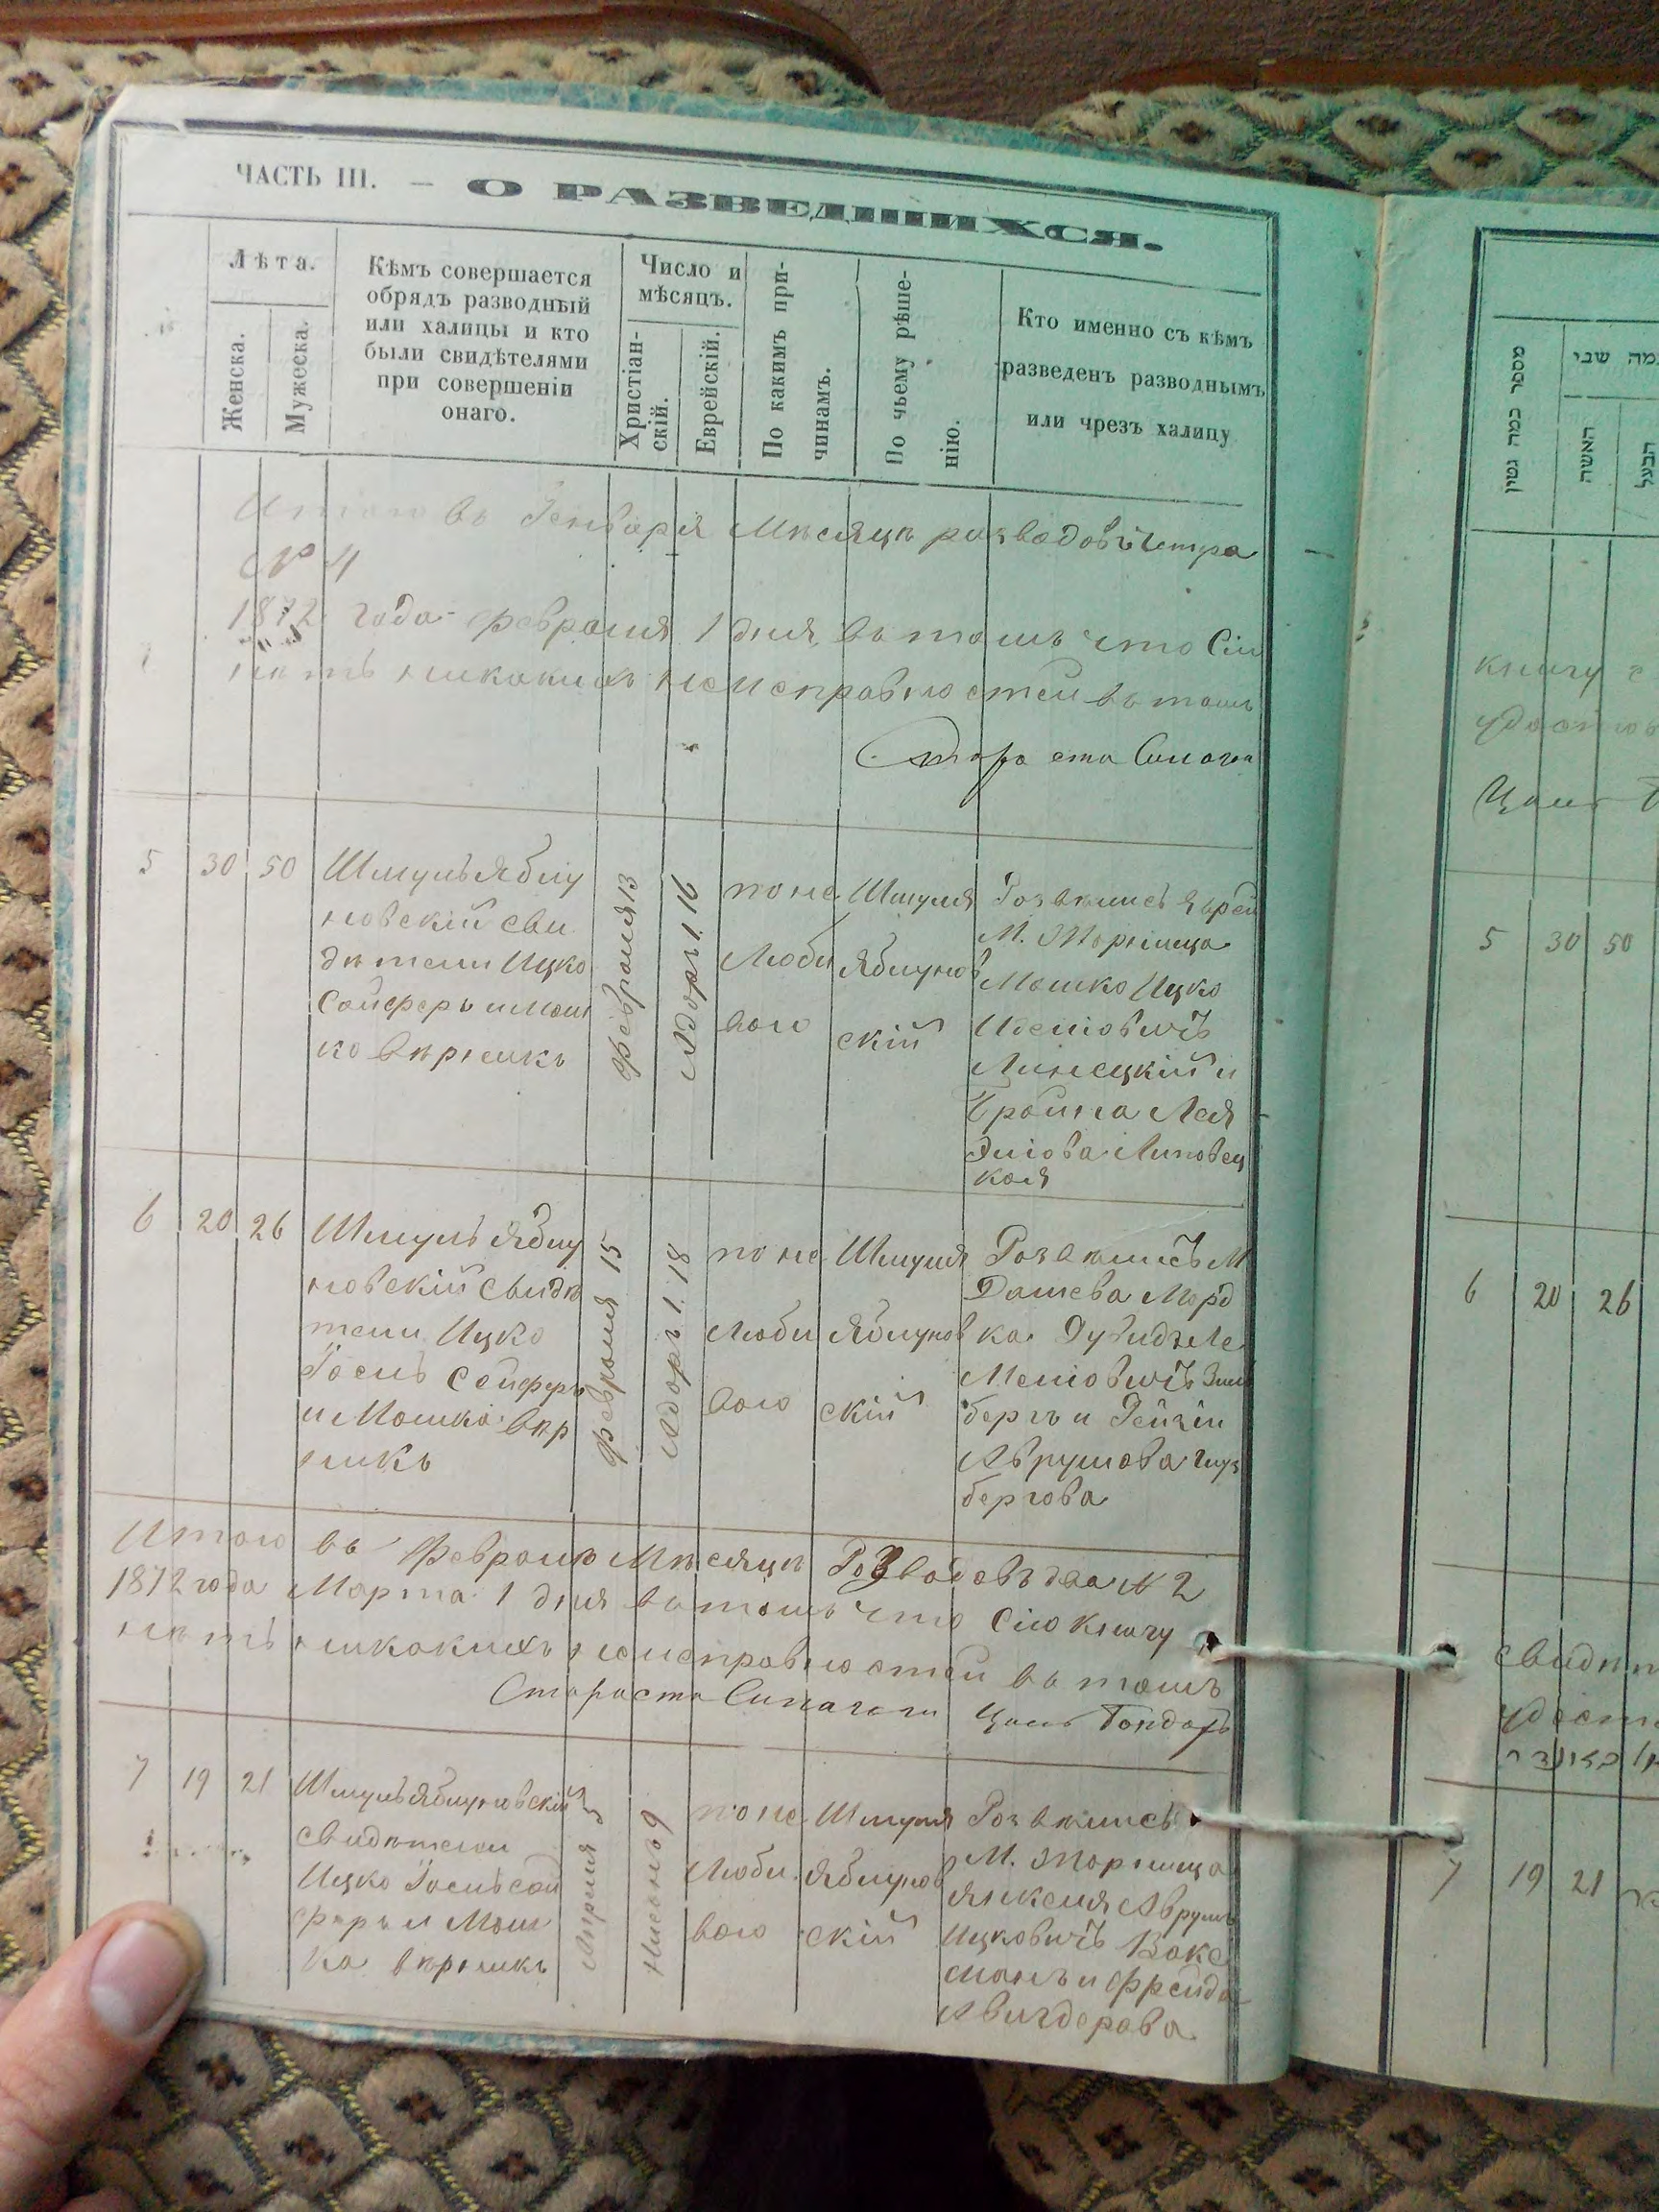 ЧАСТЬ III. — О РАЗВЕДШИХСЯ.
Лѣта.
Женска.
Мужеска.
Кѣмъ совершается
обрядъ разводный
или халицы и кто
были свидѣтелями
при совершеніи
онаго.
Число и
мѣсяцъ.
Христіан-
скій.
Еврейскій.
По какимъ при-
чинамъ.
По чьему рѣше-
нію.
Кто именно съ кѣмъ
разведенъ разводнымъ
или чрезъ халицу
Итого въ Генваря Мѣсяцѣ разводовъ четра
№ 4
1872 года февраля 1 дня въ томъ что Сію
нѣтъ никакихъ неисправностей въ томъ
Староста Синаго
5 30 50
Шмуль Яблу
новскій сви
дѣтели Ицко
Сойферъ и Мош
ко Вѣрникъ
февраля 13
Адоръ 1. 16
по не
Люби
вою
Шмуля
Яблунов
скій
Розвелись Еврей
М. Торница
Мошко Ицко
Линецкій и
Бройна Лея
Элюва Липовец
кая
6 20 26
Шмуль Яблу
новскій Свидѣ
тели Ицко
Госиъ Сойферъ
и Мошко Вѣр
никъ
февраля 15
Адоръ 1. 18
по не
Люби
вою
Шмуля
Яблунов
скій
Розвелись М
Дашева Морд
ко Дувидъ Ле
бергъ и Рейзи
Аврумова Глуз
бергова
Итого въ Февралѣ Мѣсяцѣ Розводовъ два № 2
1872 года Марта 1 дня въ томъ что Сію Книгу
нѣтъ никакихъ неисправностей въ томъ
Староста Синагоги
7 19 21
Шмуль Яблуновскій
свидѣтели
Ицко Госиъ Сой
феръ и Мош
ко Вѣрникъ
Априля 5
Нисонъ 9
по не
Люби
вою
Шмуля
Яблунов
скій
Розвелись
М. Торница
Аврумъ
Ицковичъ Вокс
манъ и Фрейда
Авигдерова
מספר כמה גטין
האשה
הבעל
книгу
5 30 50
6 20 26
7 19 21